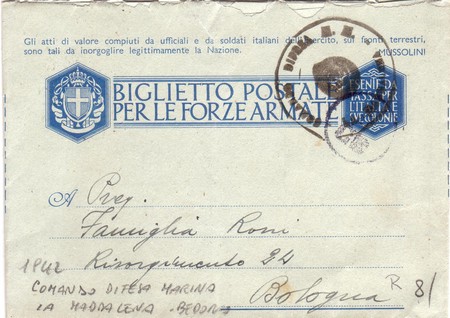 Gli atti di valore compiuti da ufficiali e da soldati italiani dell'esercito, sui fronti terrestri,
sono tali da inorgoglire legittimamente la Nazione. MUSSOLINI
BIGLIETTO POSTALE
PER LE FORZE ARMATE
ESENTE DA
TASSA PER
L'ITALIA
E COLONIE
DIFESA R. M.
A Preg.
Famiglia Roni
Risorgimento 24
Bologna
1942
COMANDO DIFESA MARINA
LA MADDALENA
R 8/